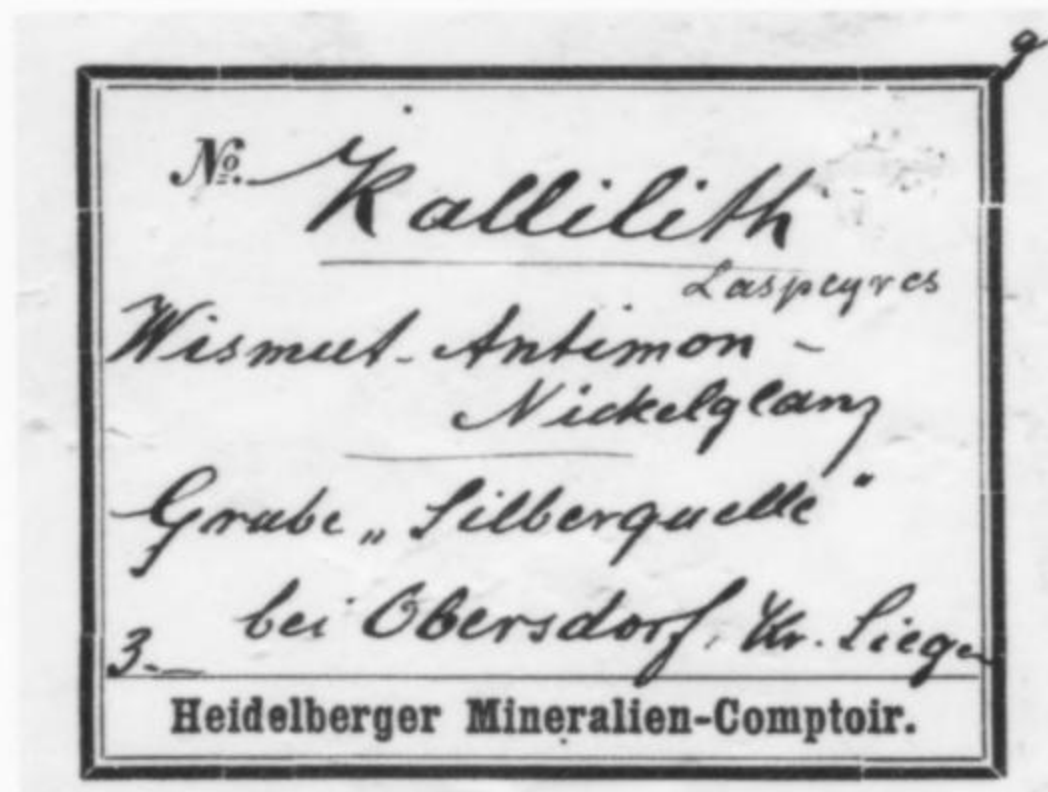 No. Kallilith
Laspeyres
Wismut-Antimon-
Nickelglanz
Grube „Silberquelle"
bei Obersdorf, Kr. Siegen
3.—
Heidelberger Mineralien-Comptoir.